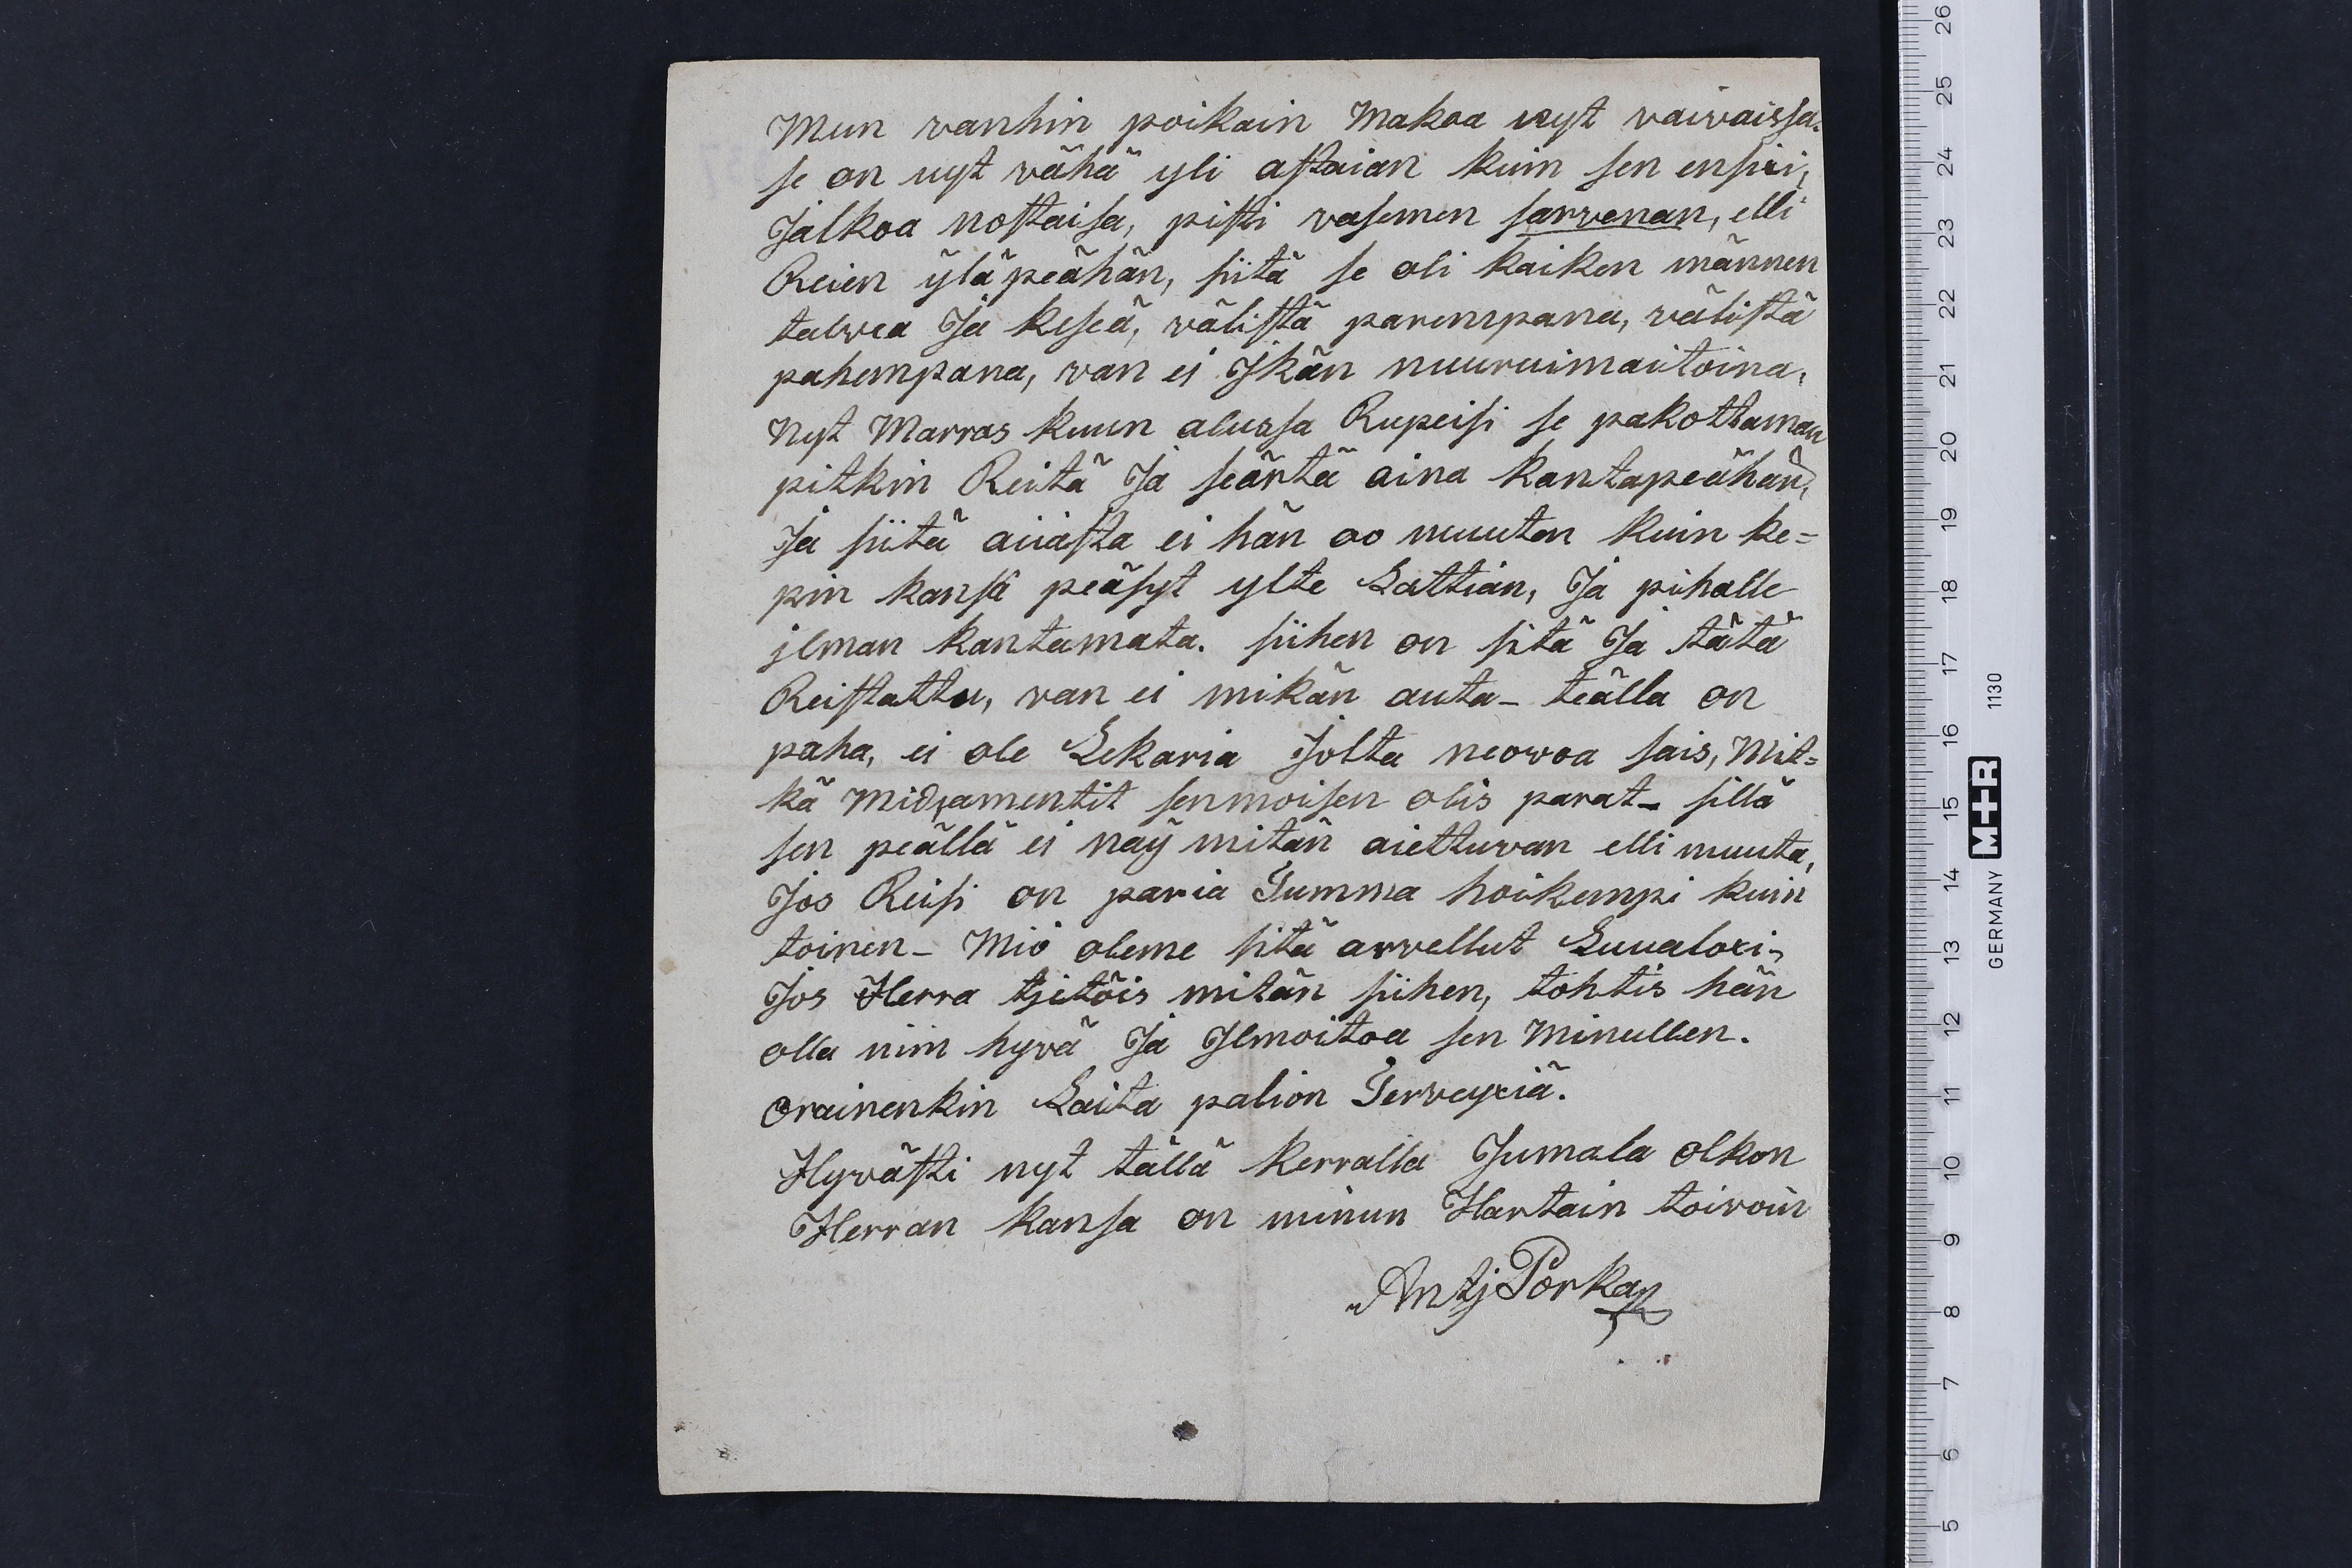 Mun vanhin poikain Makoa nyt vaivaissa.
se on nyt vähä yli astaian kuin sen ensixi,
Jalkoa nostaisa, pisti vasemen sarvenan, elli
Reien yläpeähän, siitä se oli kaiken männen
talvea Ja keseä, välistä parempana, välistä
pahempana, van ei Jkän nuuruimaitoina,
Nyt Marras kuun alussa Rupeisi se pakottaman
pitkin Reitä Ja seärtä aina kantapeähän,
Ja siitä aiiasta ei hän oo muuten kuin ke=
pin kansa peäsyt ylte Lattian, Ja pihalle
jlman kantamata. siihen on sitä Ja tätä
Reistattu, van ei mikän auta- teälla on
paha, ei ole Lekaria Jolta neovoa sais, Mit=
kä Midramentit senmoisen olis parat- sillä
sen peällä ei näy mitän aiettuvan elli muuta,
Jos Reisi on paria Tumma hoikempi kuin
toinen- Miö oleme sitä arvellut Luualoxi-,
Jos Herra tjetöis mitän siihen, tohtis hän
olla niin hyvä Ja Jlmoitoa sen Minullen.
Orainenkin Laita palion Terveyxiä.
Hyvästi nyt tällä kerralla Jumala olkon
Herran kansa on minun Hartain toivoin
Antj Porka
GERMANY M+R 1130
26
25
24
23
22
21
20
19
18
17
16
15
14
13
12
11
10
9
8
7
6
5